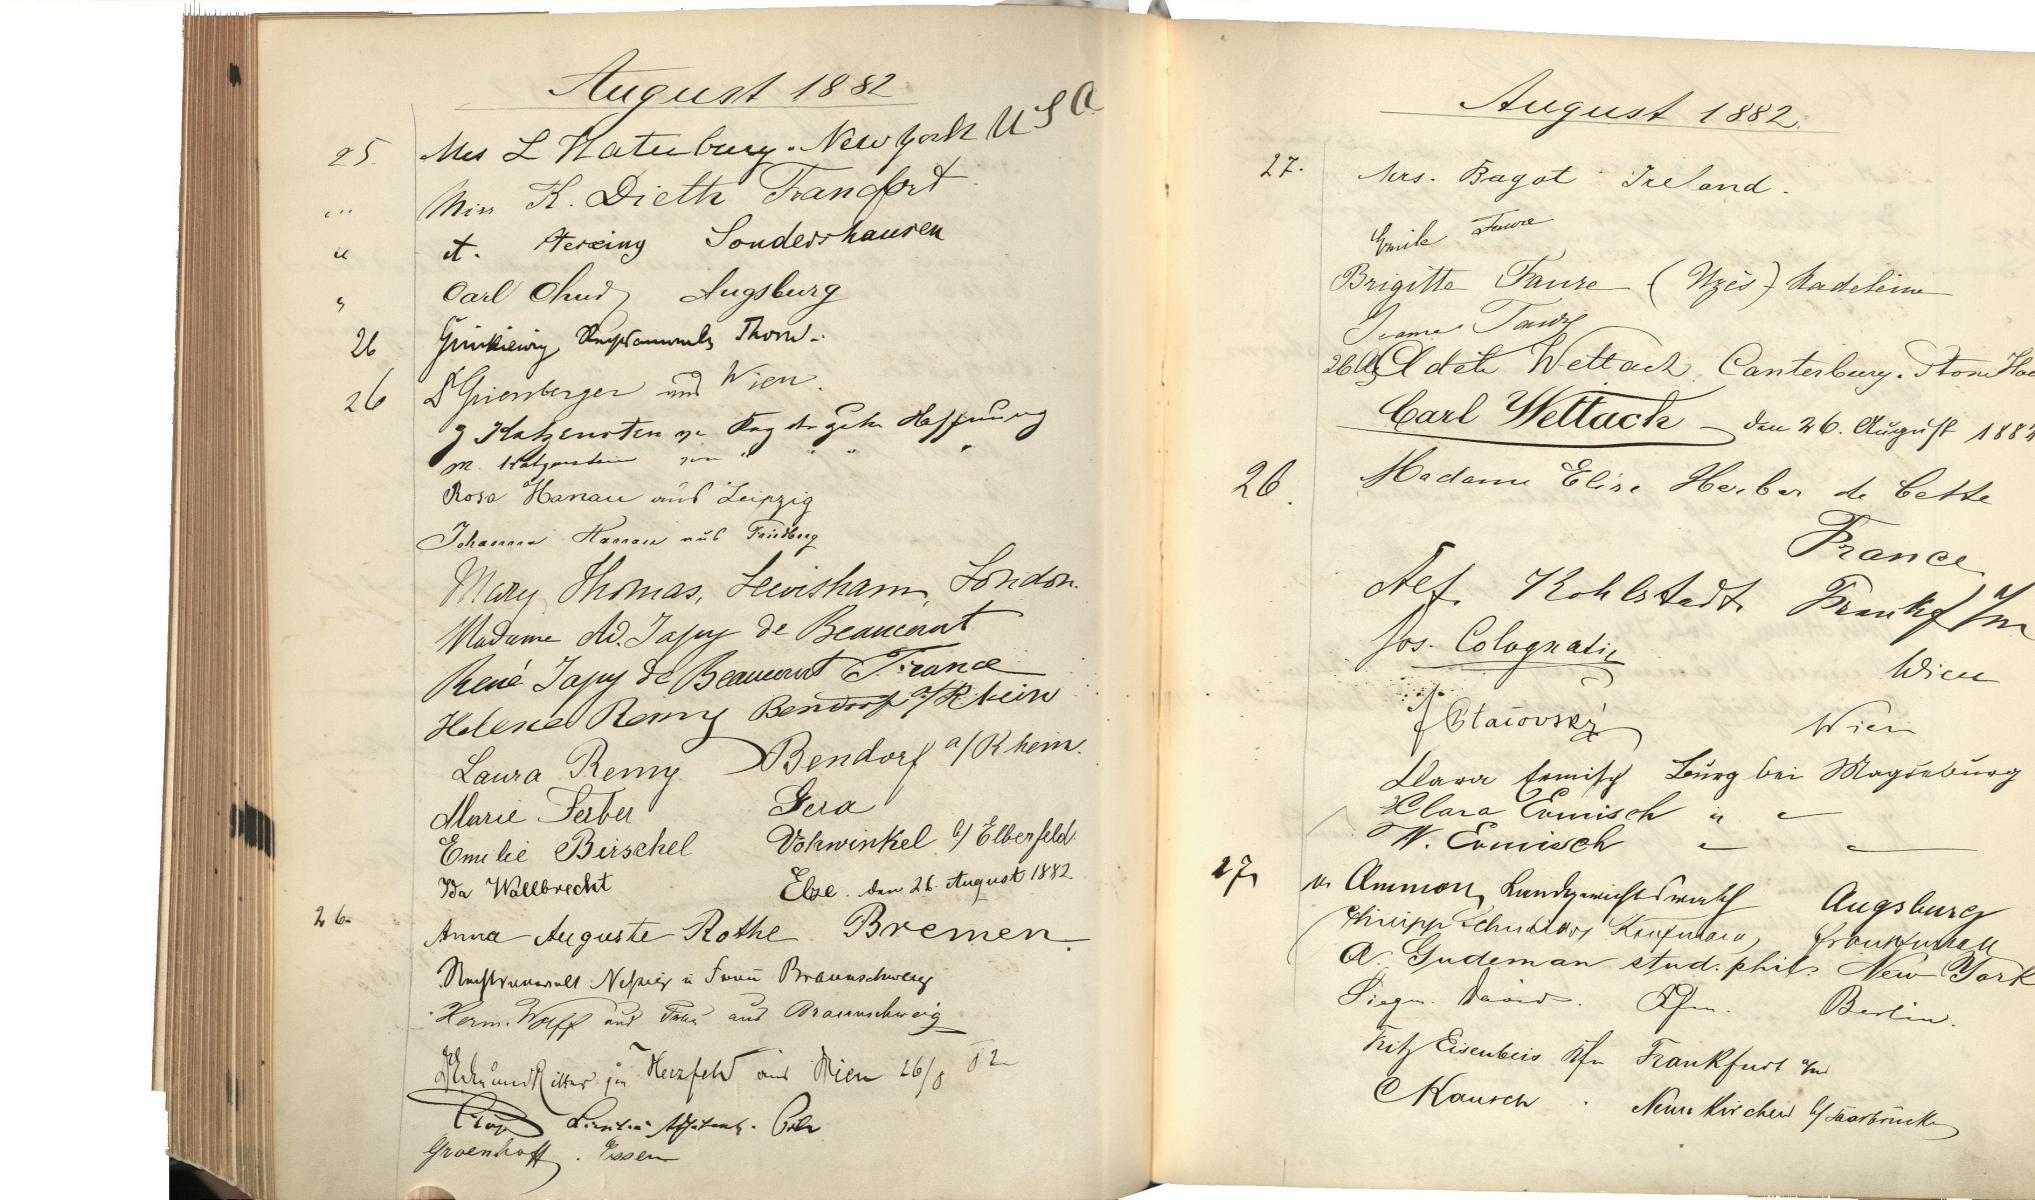 August 1882
25. Mrs L Waterbury. New York U S A
Miss K. Dieth Francfort
" A. Sondershausen
" Carl Augsburg
26 Thorn.
26 Dr Grienberger und Wien.
J Katzenstein Cap der guten Hoffnung
M. Katzenstein " " " "
Rosa Hanau aus Leipzig
Johanna Hanau aus Friedberg
Mary Thomas, Lewisham, London.
Madame Ad. Japy de Beaucourt
René Japy de Beaucourt France
Helene Remy Bendorf a/Rhein
Laura Remy Bendorf a/Rhein.
Marie Ferber Gera
Emilie Birschel Vohwinkel b/Elberfeld.
Ida Wallbrecht Elze. den 26. August 1882
26. Anna Auguste Rothe Bremen.
Rechtsanwalt u Frau Braunschweig
Herm. Wolff und Frau aus Braunschweig
Ritter Herzfeld aus Wien 26/8 82
Groenhoff. Essen
August 1882.
27. Mrs. Bagot Ireland.
Emile Faure
Brigitte Faure (Uzès) Madeleine
26 Adele Wettach Canterbury. Stone
Carl Wettach den 26. August 1882
26. Madame Elise de Cette
France
Alf. Kohlstadt. Frankf/m
Jos. Wien
Wien
Clara Ermisch Burg bei Magdeburg
Clara Ermisch " "
W. Ermisch " "
27 v. Ammon, Landgerichtsrath Augsburg
Philipp Kaufmann,
A. Gudeman stud. phil. New York
Siegm. David. Kfm. Berlin.
Fritz Eisenbeis Kfm Frankfurt a/m
C Kausch. Neunkirchen b/Saarbrücken